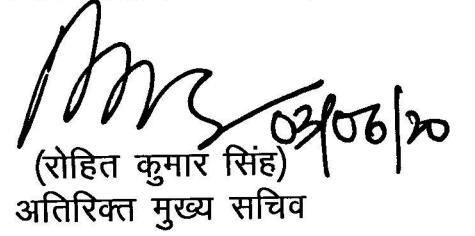 03/06/20
(रोहित कुमार सिंह)
अतिरिक्त मुख्य सचिव